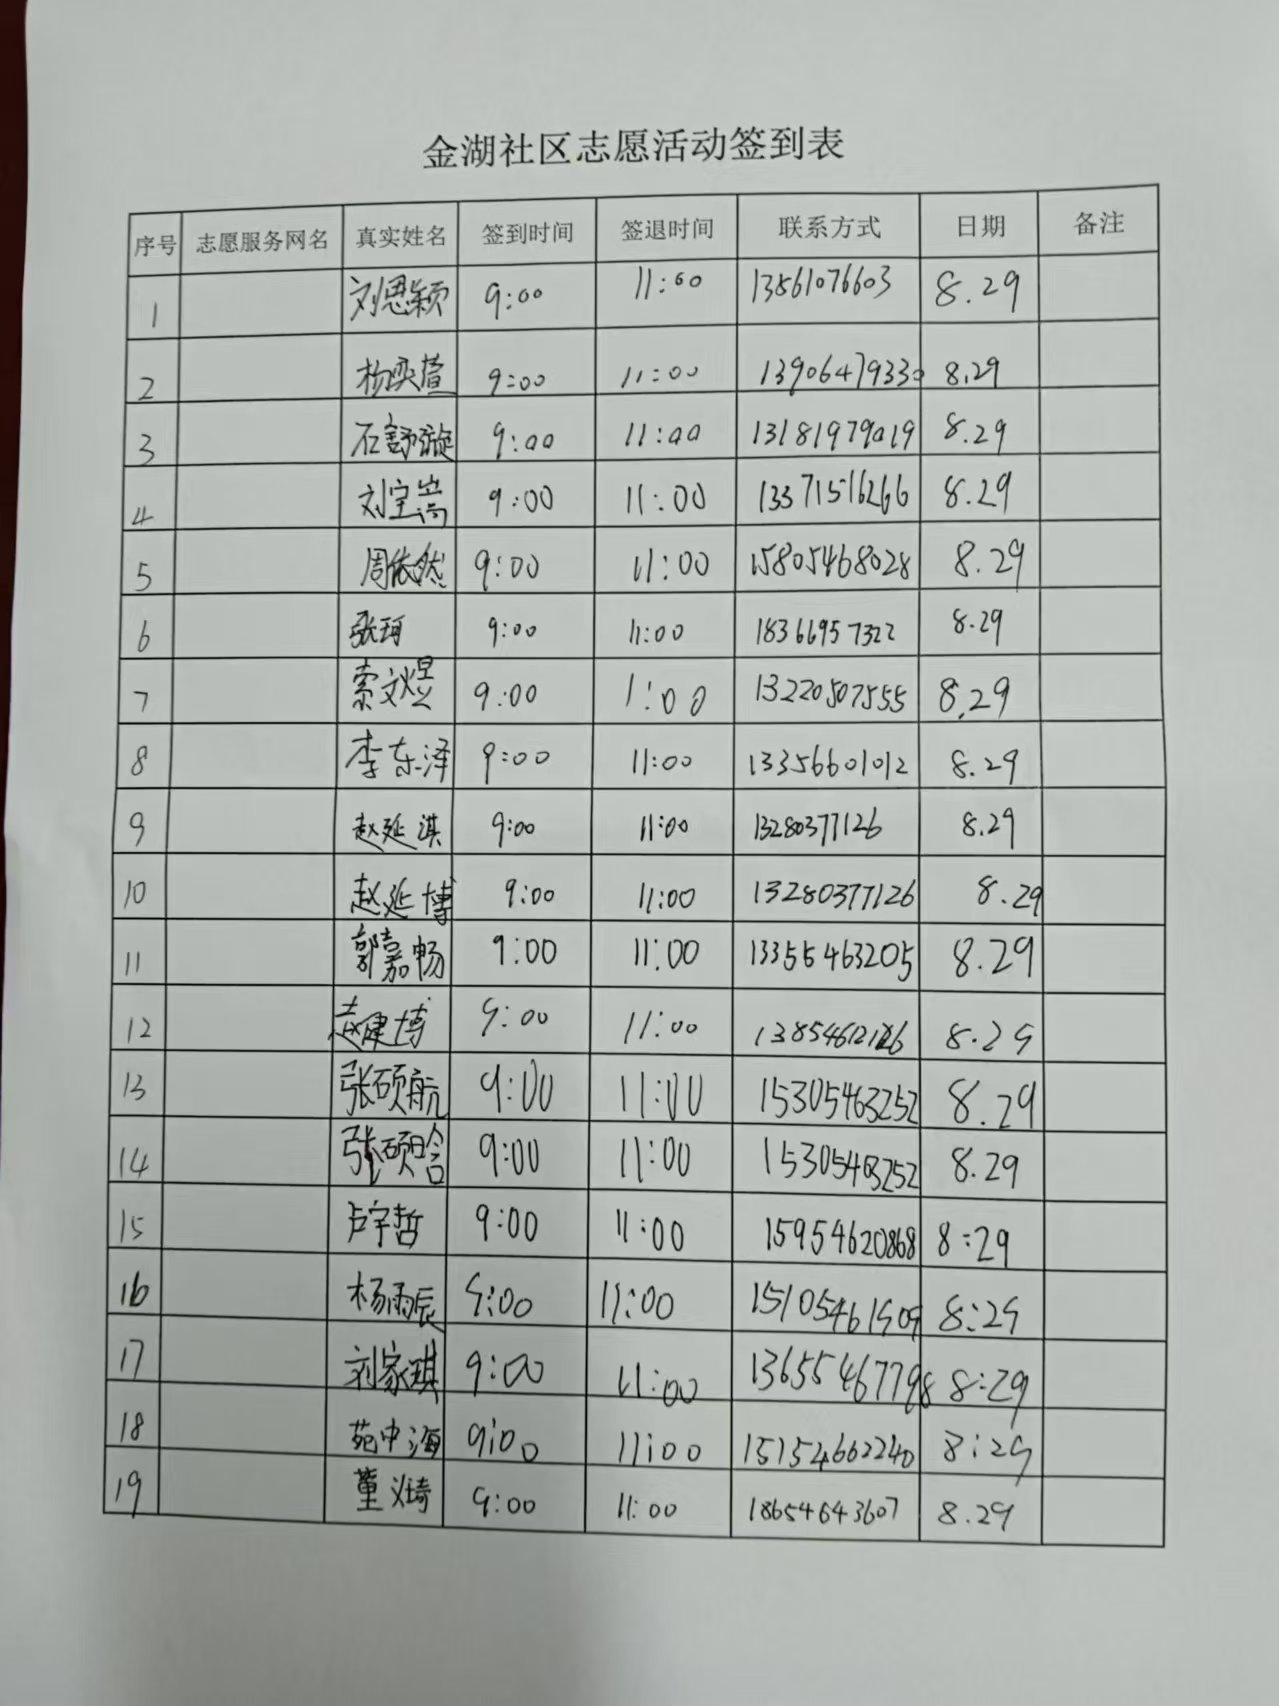 金湖社区志愿活动签到表
序号 志愿服务网名 真实姓名 签到时间 签退时间 联系方式 日期 备注
1 刘思颖 9:00 11:00 13561076603 8.29
2 杨奕萱 9:00 11:00 13906479330 8.29
3 石舒璇 9:00 11:00 13181979019 8.29
4 刘宝嵩 9:00 11:00 13371516266 8.29
5 周依然 9:00 11:00 15805468028 8.29
6 张珂 9:00 11:00 18366957322 8.29
7 索文煜 9:00 1:00 13220507555 8.29
8 李东泽 9:00 11:00 13356601012 8.29
9 赵延淇 9:00 11:00 13280377126 8.29
10 赵延博 9:00 11:00 13280377126 8.29
11 郭嘉畅 9:00 11:00 13355463205 8.29
12 赵建博 9:00 11:00 8.29
13 张硕航 9:00 11:00 15305463252 8.29
14 张硕晗 9:00 11:00 15305463252 8.29
15 卢宇哲 9:00 11:00 15954620868 8:29
16 杨雨辰 9:00 11:00 15105461909 8:29
17 刘家琪 9:00 11:00 13655467798 8:29
18 苑中海 9:00 11:00 15154662240 8:29
19 董 9:00 11:00 18654643607 8.29